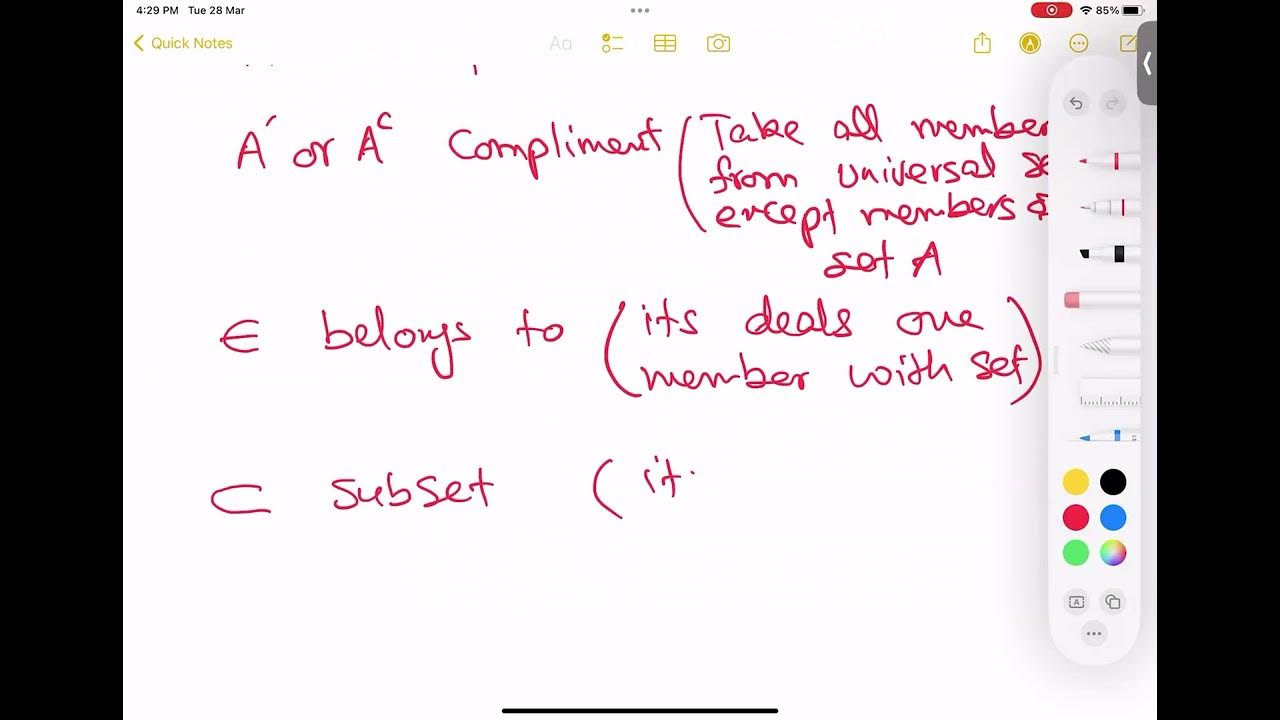 4:29 PM Tue 28 Mar
85%
Quick Notes
Aa
A' or Aᶜ Compliment (Take all member
from universal se
except members o
set A
∈ belongs to (its deals one
member with set)
⊂ subset (it
A